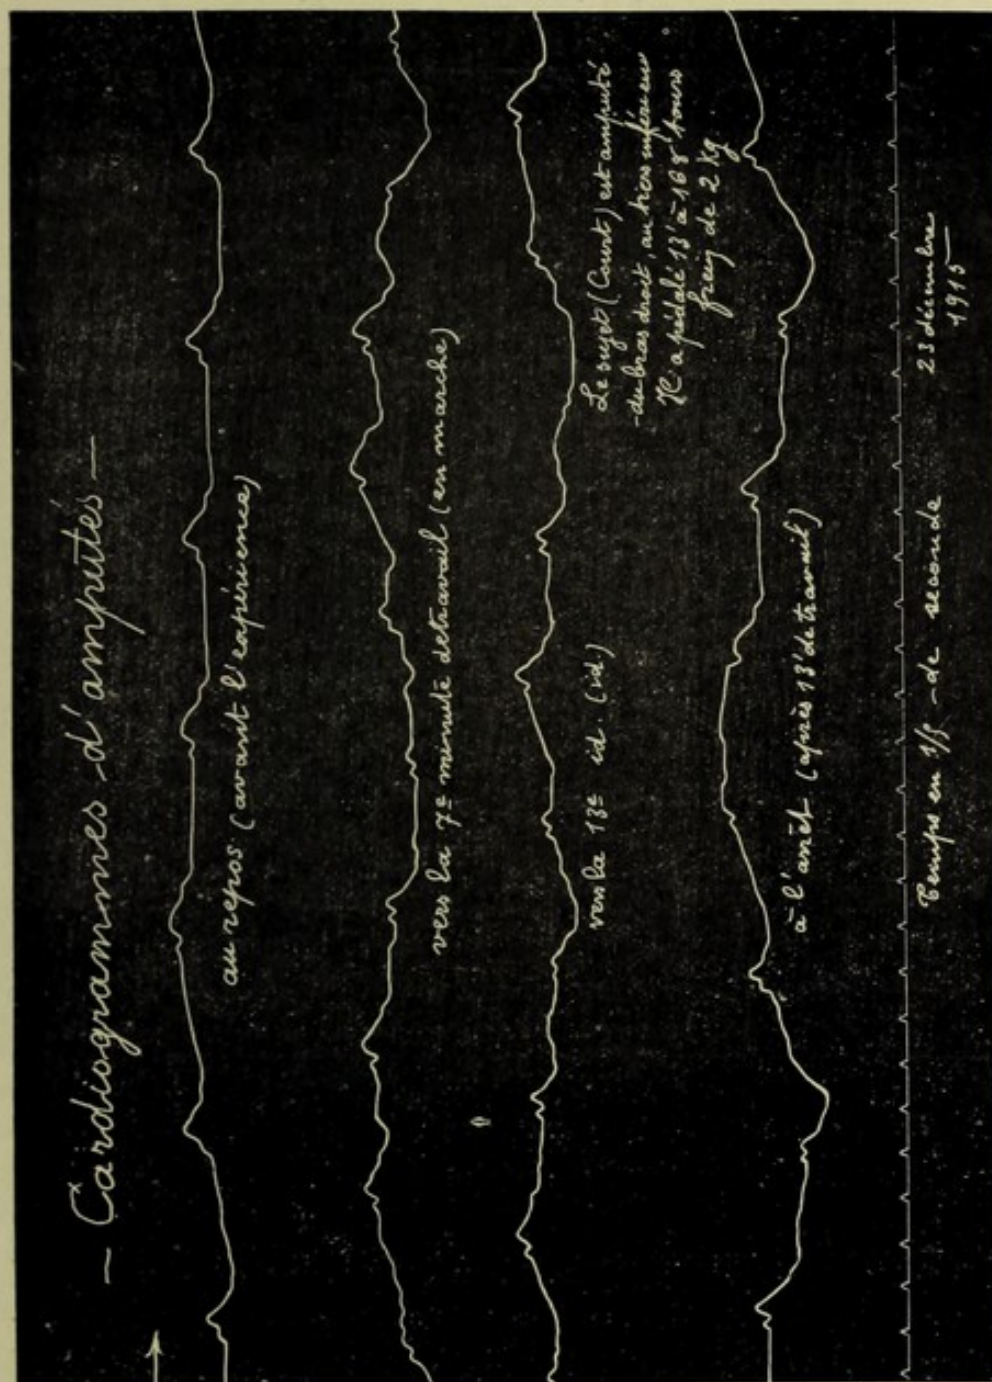 — Cardiogrammes d'amputés —
au repos (avant l'expérience)
vers la 7e minute de travail (en marche)
Le sujet (Court) est amputé
du bras droit, au tiers inférieur
Il a pédalé 13' à 168 tours
frein de 2 Kg
vers la 13e id. (id.)
à l'arrêt (après 13' de travail)
Temps en 1/5 de seconde
23 décembre
1915